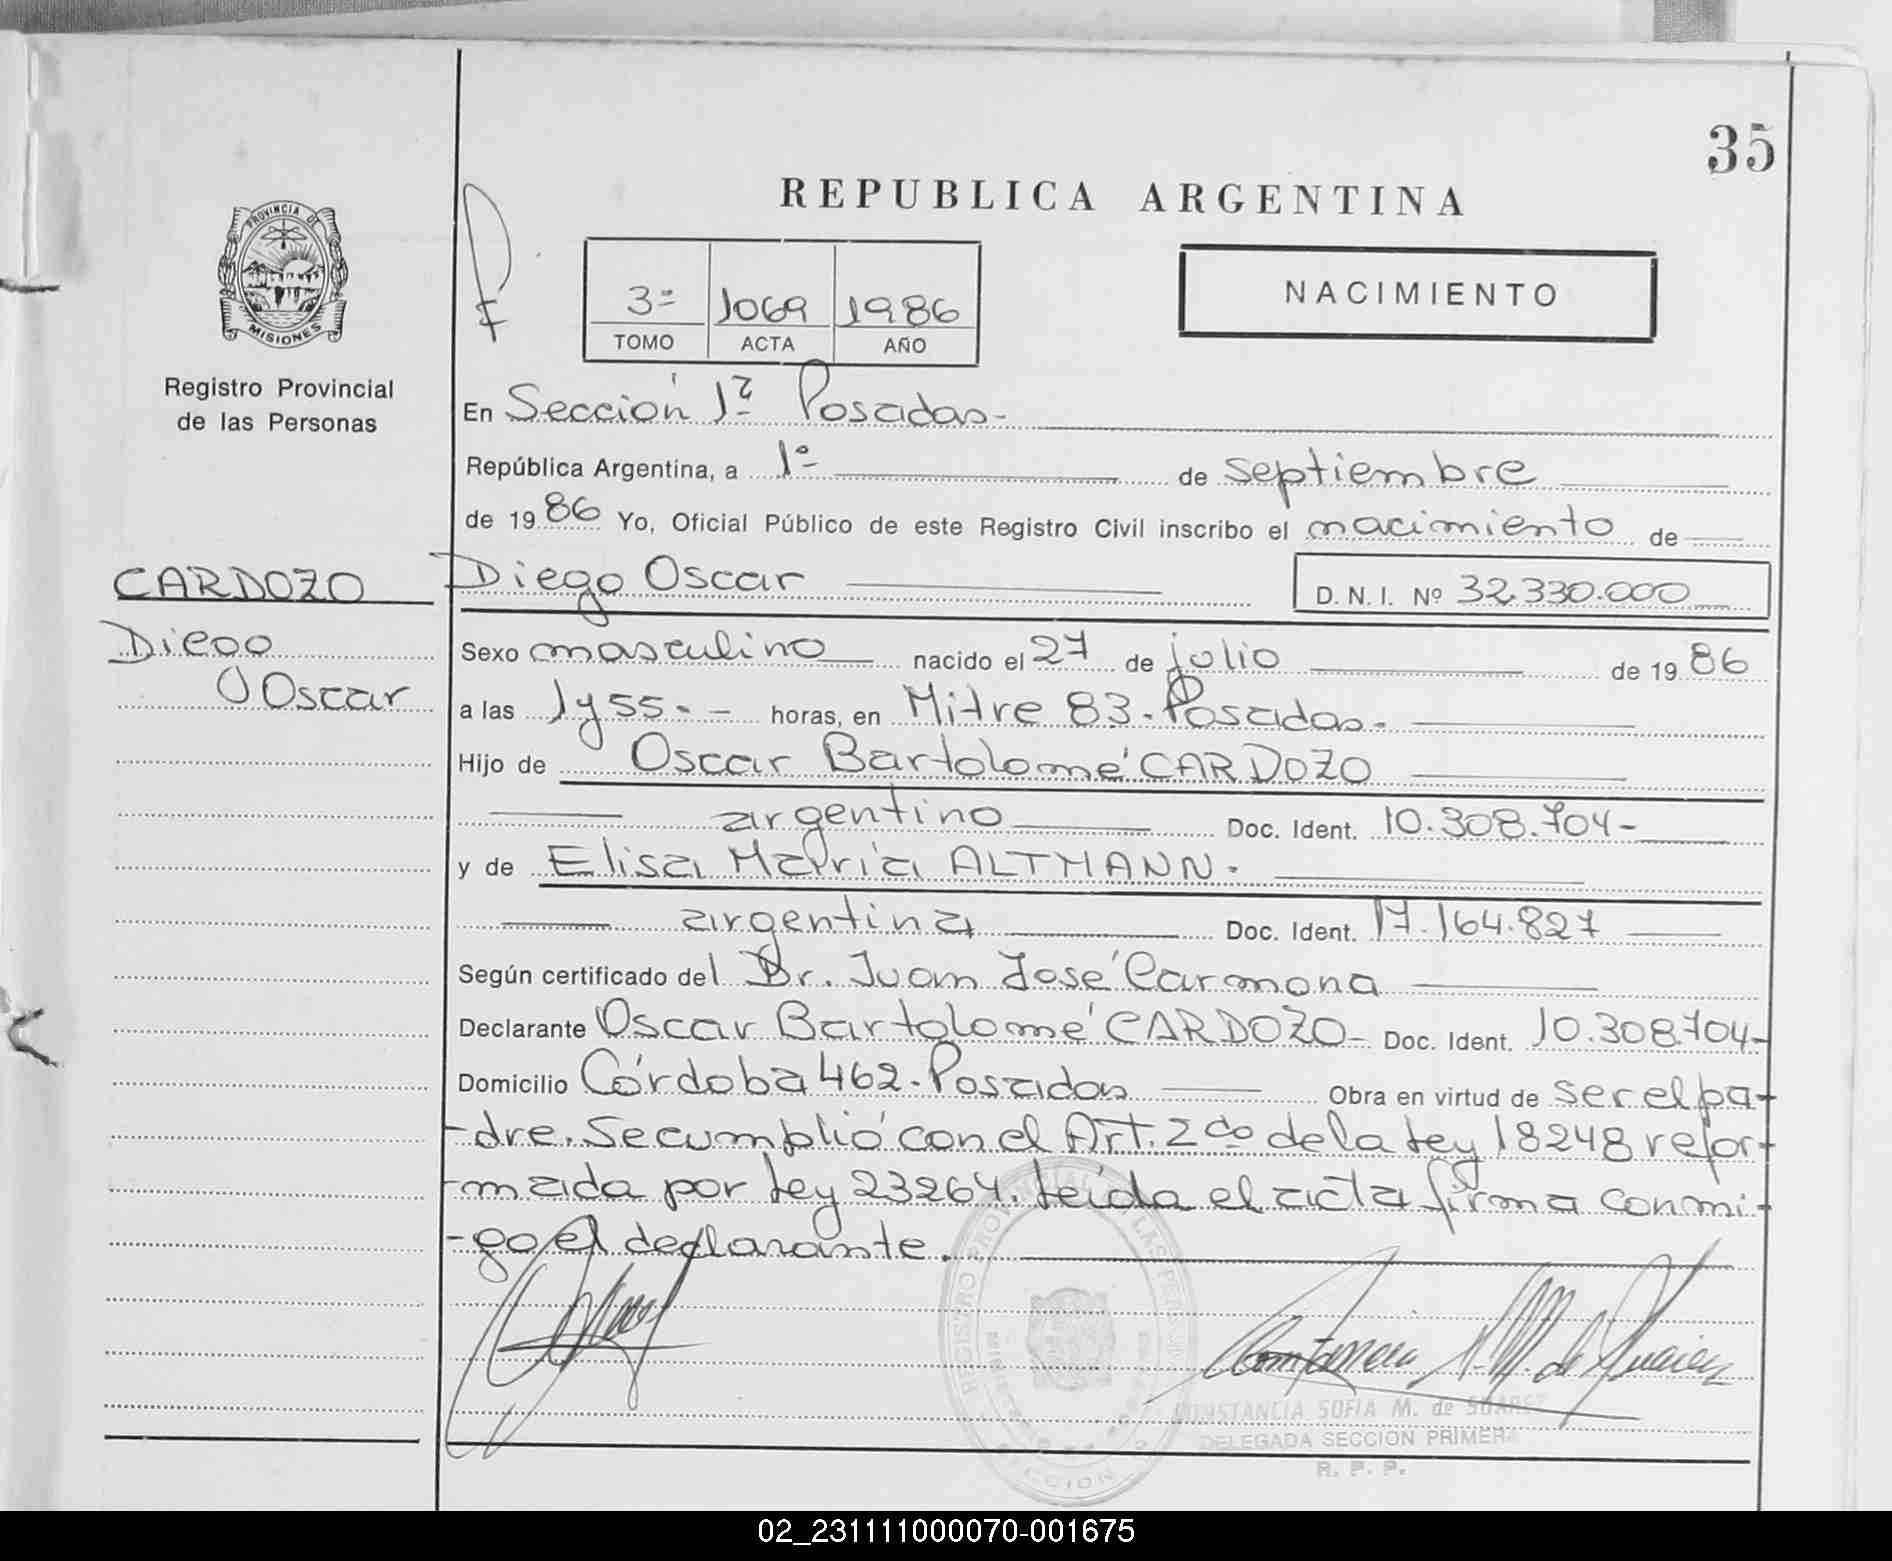 35
REPUBLICA ARGENTINA
PROVINCIA DE
MISIONES
Registro Provincial
de las Personas
3º 1069 1986
TOMO ACTA AÑO
NACIMIENTO
En Sección 1ª Posadas-
República Argentina, a 1º de septiembre
de 1986 Yo, Oficial Público de este Registro Civil inscribo el nacimiento de
CARDOZO
Diego
Oscar
Diego Oscar D. N. I. Nº 32.330.000
Sexo masculino nacido el 27 de julio de 1986
a las 1 y 55.- horas, en Mitre 83. Posadas.
Hijo de Oscar Bartolomé CARDOZO
argentino Doc. Ident. 10.308.704-
y de Elisa María ALTMANN.
argentina Doc. Ident. 17.164.827
Según certificado del Dr. Juan José Carmona
Declarante Oscar Bartolomé CARDOZO- Doc. Ident. 10.308.704-
Domicilio Córdoba 462. Posadas Obra en virtud de ser el pa-
-dre. Se cumplió con el Art. 2do de la Ley 18248 refor-
-mada por Ley 23264. Leída el acta firma conmi-
-go el declarante.
Constancia S. M. de Suarez
CONSTANCIA SOFIA M. de SUAREZ
DELEGADA SECCION PRIMERA
R. P. P.
02_231111000070-001675